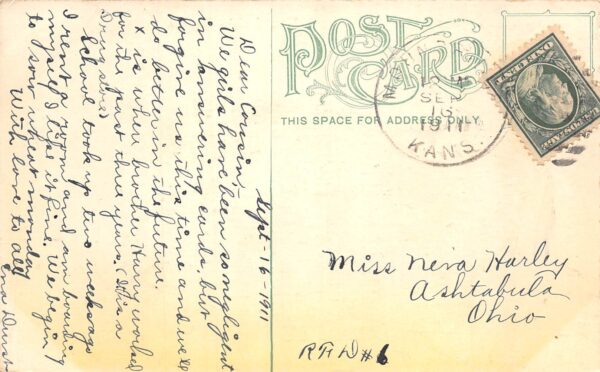 Sept-16-1911
Dear Cousin;-
We girls have been so negligent
in answering cards, but
forgive us this time and we'll
do better in the future.
X is where brother Harry worked
for the past three years. (It is a
Drug store)
School took up two weeks ago
I rent a room and am boarding
myself I like it fine. We begin
to sow wheat monday
With love to all
Ina
POST
CARD
THIS SPACE FOR ADDRESS ONLY.
SEP
1911
KANS.
Miss Neva Harley
Ashtabula
Ohio
R F D # 6